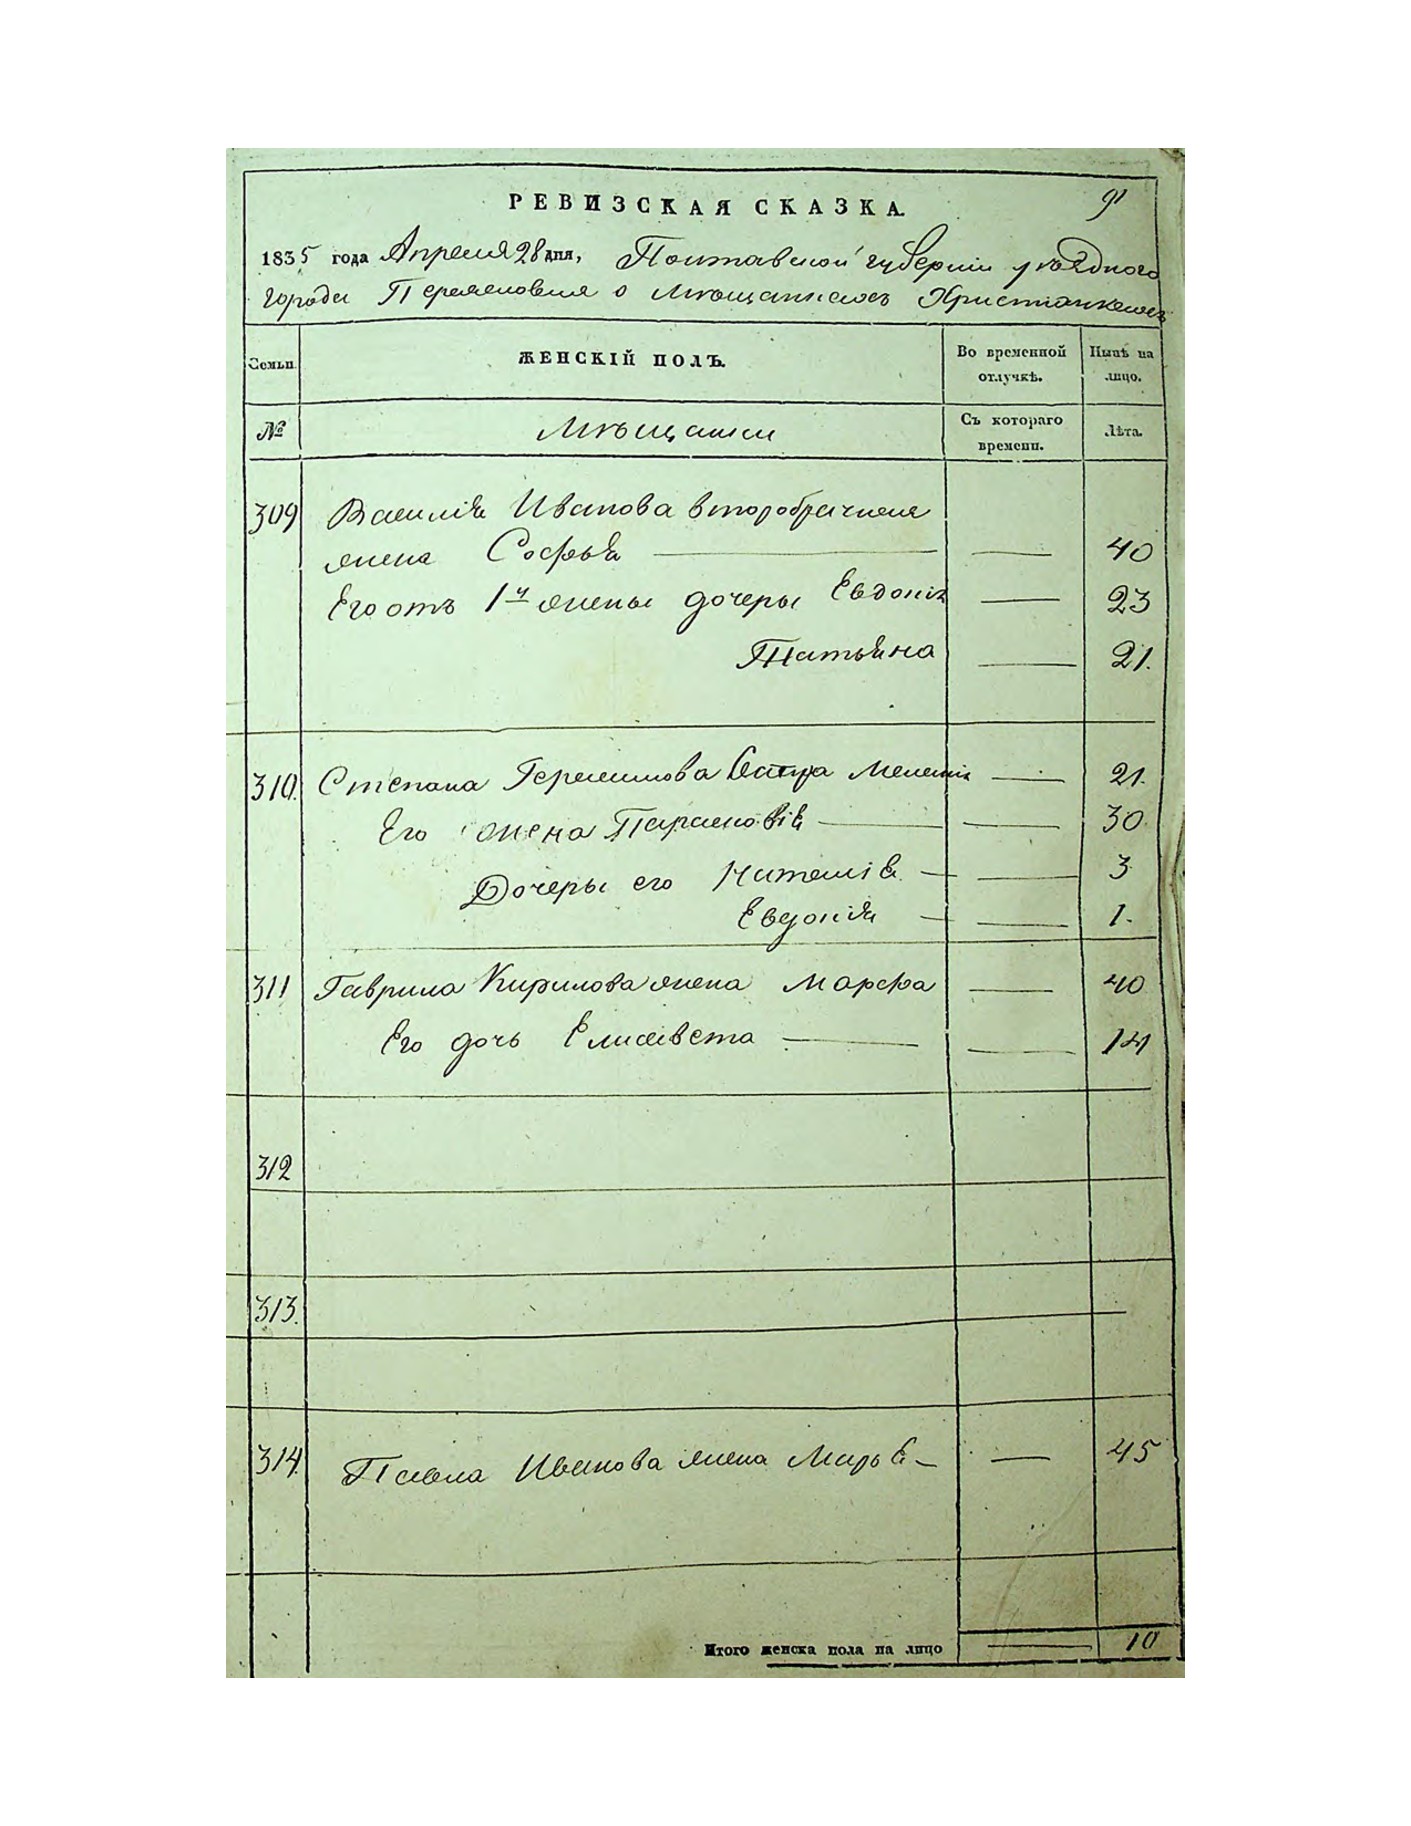 РЕВИЗСКАЯ СКАЗКА.
91
1835 года Апреля 28 дня, Полтавской губерніи уѣздного
города Переяслова о мѣщанахъ Христіанахъ
Семьи.
ЖЕНСКІЙ ПОЛЪ.
Во временной отлучкѣ.
Нынѣ на лицо.
№
Мѣщанки
Съ котораго времени.
Лѣта.
309 Василія Иванова второбрачная
жена Софья — — 40
Его отъ 1й жены дочеры Евдокія — 23
Татьяна — 21.
310. Степана Герасимова сестра Меланія — 21.
Его жена Парасковія — — 30
Дочеры его Наталія — — 3
Евдокія — — 1.
311 Гаврила Кирилова жена Марфа — 40
Его дочь Елисавета — — 14
312
313.
314. Павла Иванова жена Марья — — 45
Итого женска пола на лицо — 10